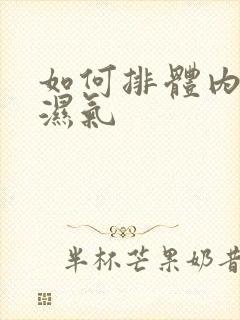 如何排體內
濕氣
半杯芒果奶昔